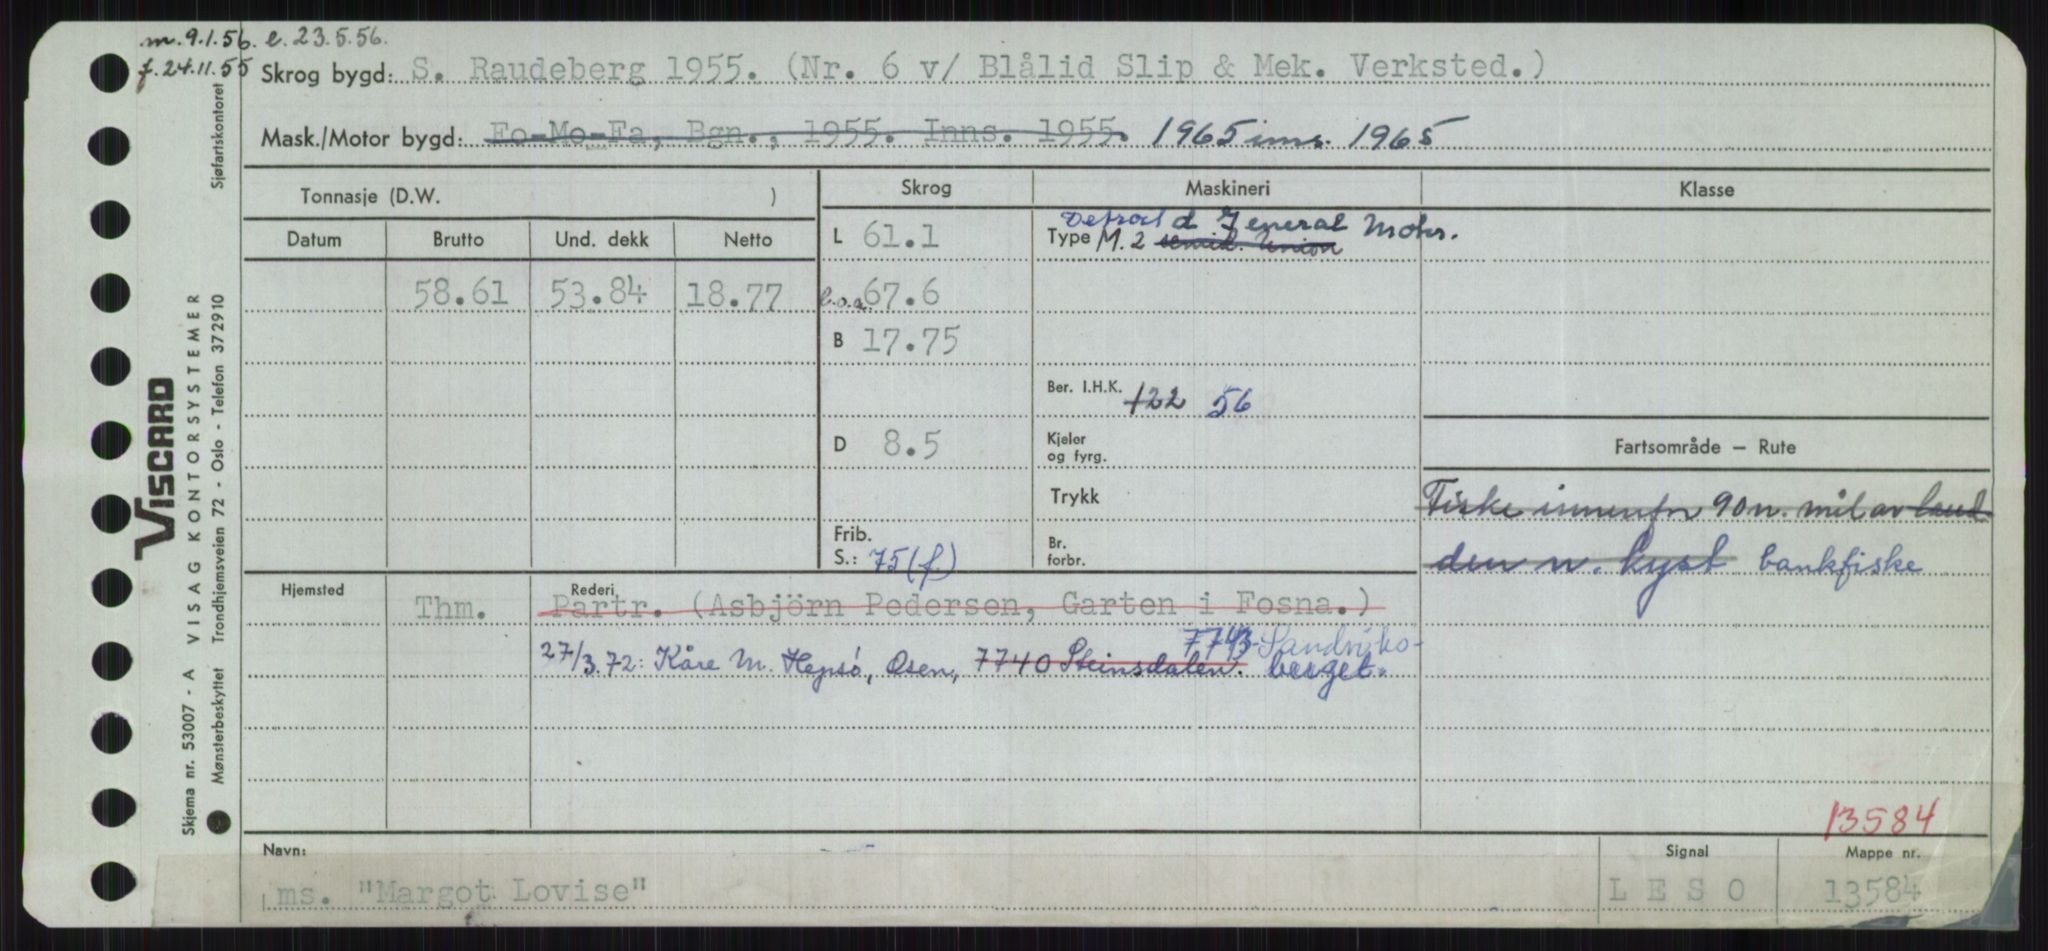 m. 9.1.56. e. 23.5.56.
f. 24.11.55 Skrog bygd: S. Raudeberg 1955. (Nr. 6 v/ Blålid Slip & Mek. Verksted.)
Mask./Motor bygd: Fo-Mo-Fa, Bgn., 1955. Inns. 1955. 1965 inns. 1965
Tonnasje (D.W. ) Skrog Maskineri Klasse
Datum Brutto Und. dekk Netto L 61.1 Type M. 2 semid. Union
Detroit d General Motors.
58.61 53.84 18.77 l.o.a. 67.6
B 17.75
Ber. I.H.K. 122 56
D 8.5 Kjeler og fyrg. Fartsområde – Rute
Trykk Fiske innenfor 90 n. mil av land
Frib. S.: 75 (f) Br. forbr. den n. kyst bankfiske
Hjemsted Thm. Rederi Partr. (Asbjörn Pedersen, Garten i Fosna.)
27/3.72: Kåre M. Hepsø, Osen, 7740 Steinsdalen. 7743 Sandviks-
berget.
13584
Navn: ms. "Margot Lovise" Signal LESO Mappe nr. 13584
VISCARD
VISAG KONTORSYSTEMER
Skjema nr. 53007 - A
Mønsterbeskyttet Trondhjemsveien 72 - Oslo - Telefon 372910 Sjøfartskontoret